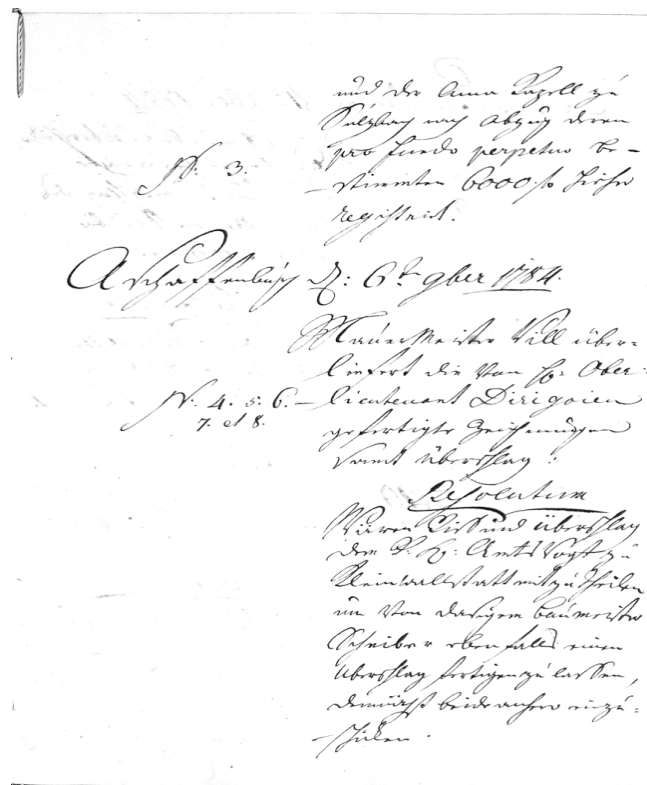 und der Anna Kapell zu
Sulzbach nach Abzug deren
pro fundo perpetuo be-
N: 3.
stimmten 6000 fl hieher
registrirt.
Aschaffenburg d: 6ten 9ber 1784.
Mauermeister Till über-
liefert die von H: Ober-
N. 4. 5. 6. lieutenant Dirigoien
7. et 8.
gefertigte Zeichnungen
samt überschlag:
Resolutum
Wären Riss und überschlag
dem H: Amts Vogt zu
Kleinwallstatt mitzutheilen
um von dasigem baumeister
Schreiber ebenfalls einen
überschlag fertigen zu lassen,
demnächst beide anhero einzu-
schicken.